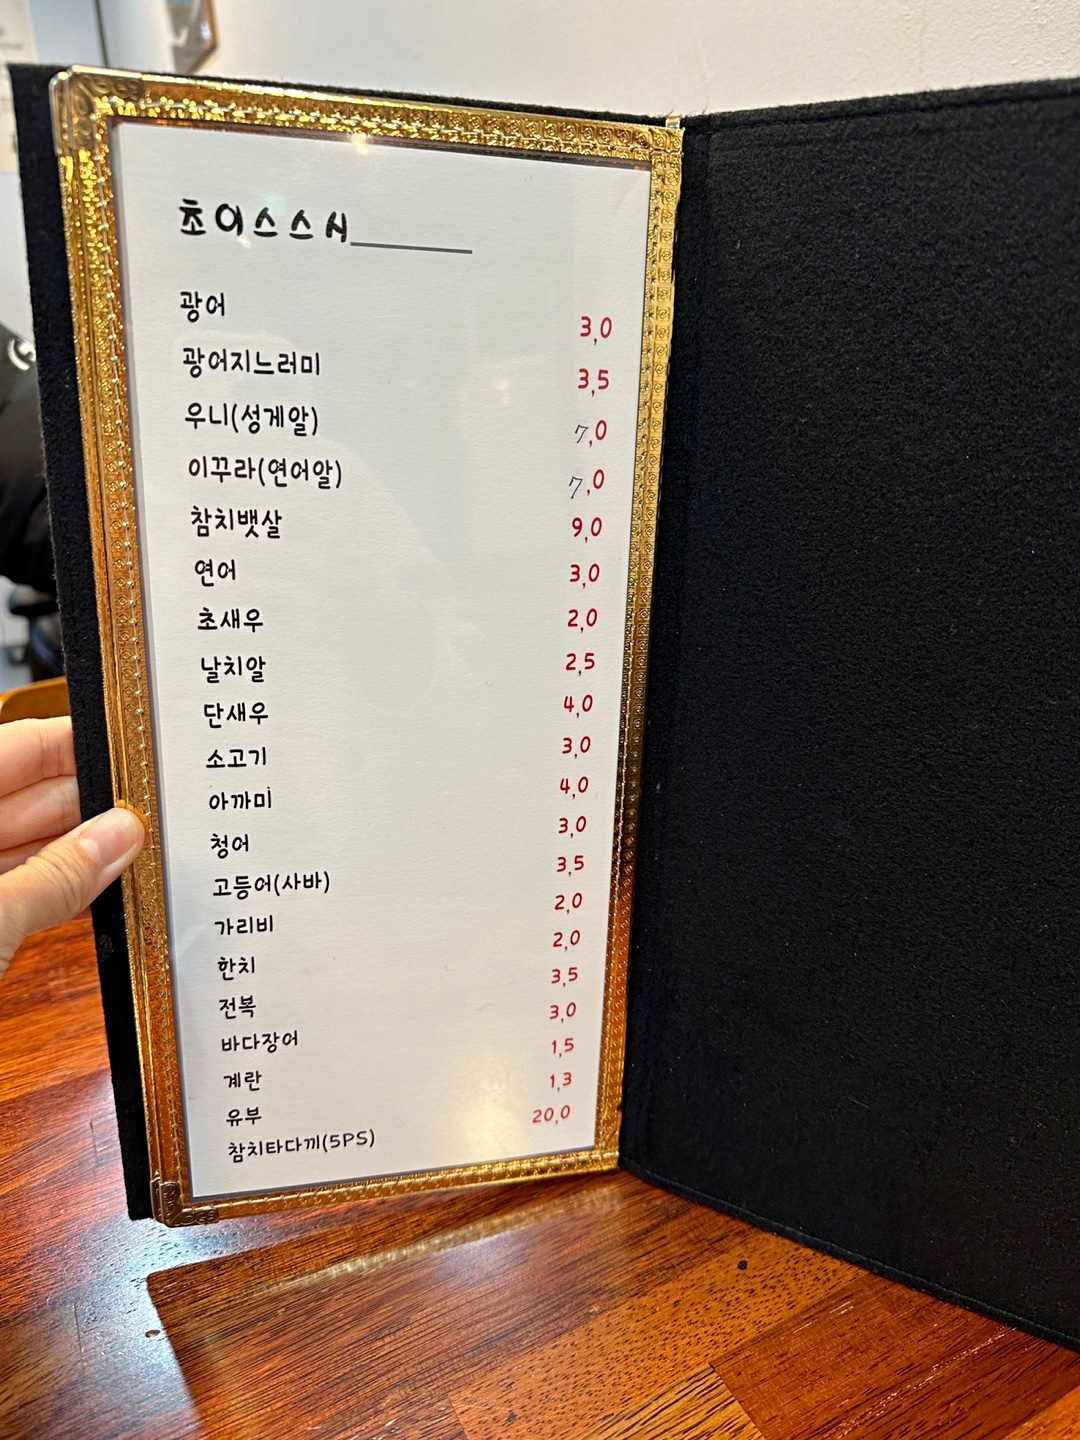 초이스스시
광어 3,0
광어지느러미 3,5
우니(성게알) 7,0
이꾸라(연어알) 7,0
참치뱃살 9,0
연어 3,0
초새우 2,0
날치알 2,5
단새우 4,0
소고기 3,0
아까미 4,0
청어 3,0
고등어(사바) 3,5
가리비 2,0
한치 2,0
전복 3,5
바다장어 3,0
계란 1,5
유부 1,3
참치타다끼(5PS) 20,0